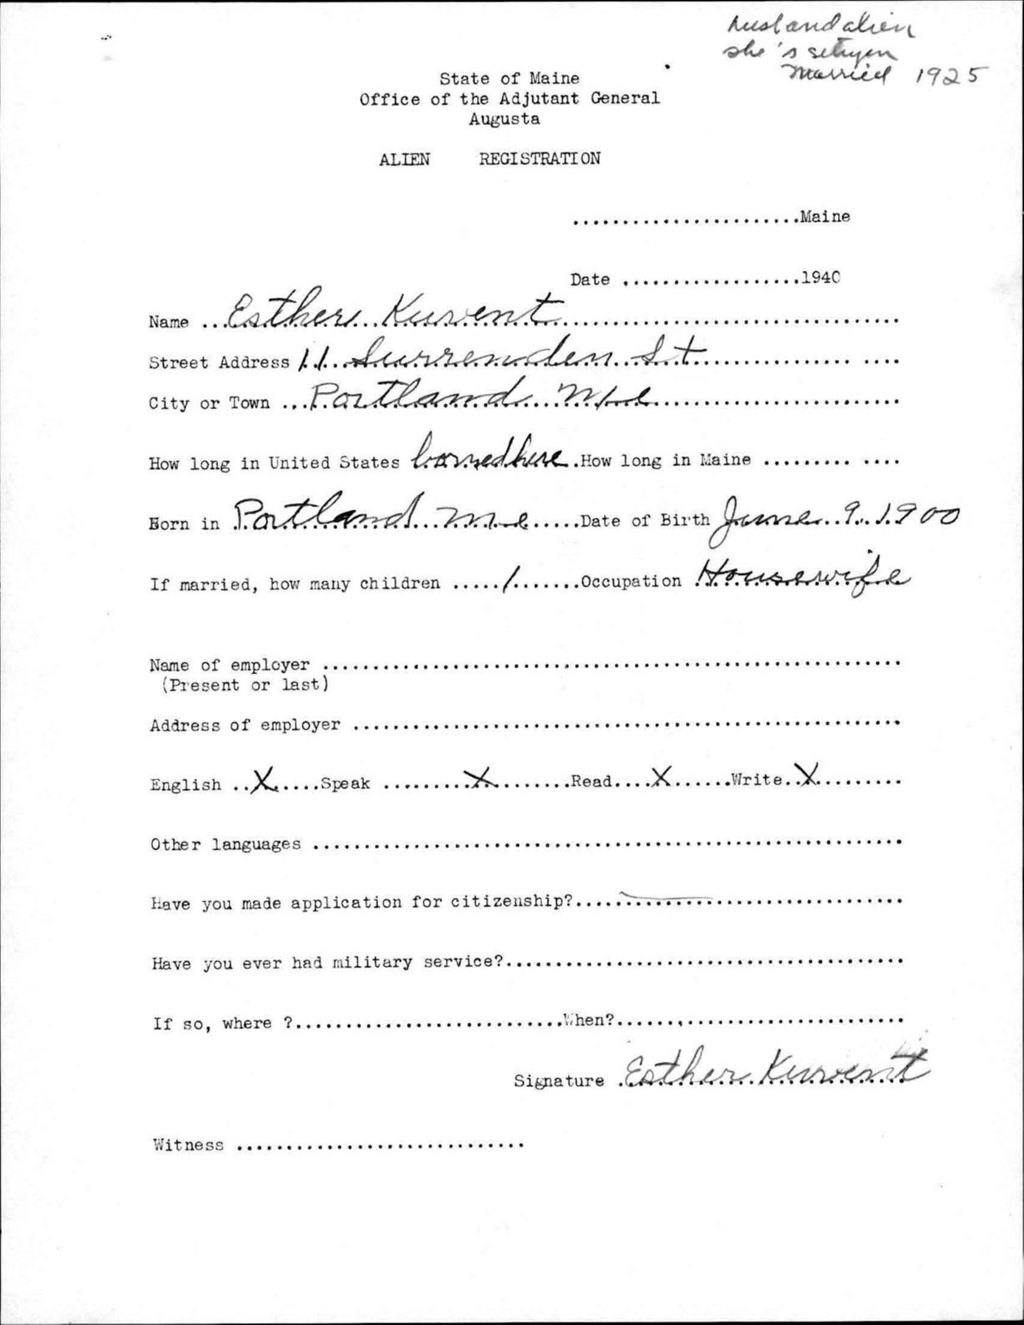 husband alien
she's sitizen
Married 1925
State of Maine
Office of the Adjutant General
Augusta
ALIEN REGISTRATION
.......................Maine
Date ..................1940
Name ...Esther Kurvent...................................
Street Address 11 Surrenden St................... ....
City or Town ...Portland Me..........................
How long in United States borned here .How long in Maine ......... ....
Born in Portland Me.....Date of Birth June 9. 1900
If married, how many children ...../.......Occupation Housewife
Name of employer ..........................................................
(Present or last)
Address of employer .......................................................
English ..X.....Speak .........X.........Read....X......Write..X.........
Other languages ...........................................................
Have you made application for citizenship?.................................
Have you ever had military service?........................................
If so, where ?...........................When?.............................
Signature .Esther Kurvent
Witness .............................